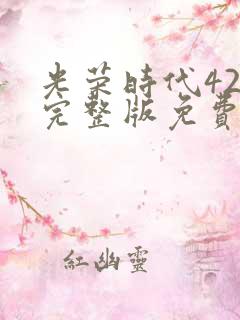 光荣時代42
完整版免費
紅幽靈